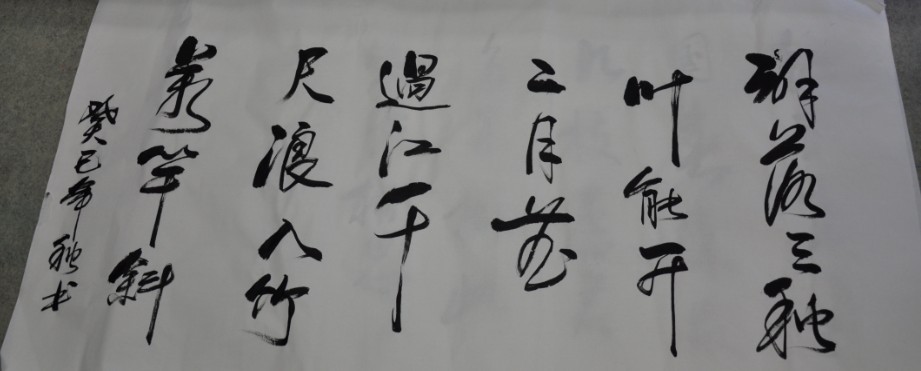 解落三秋
叶能开
二月花
過江千
尺浪入竹
萬竿斜
癸巳年秋书